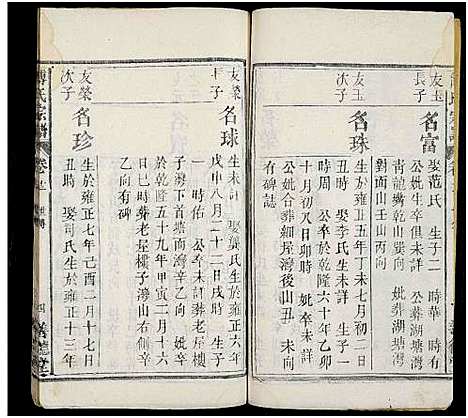 友玉
長子
名富
娶范氏 生子二 時華 時有
公妣生卒俱未詳 公葬湖塘灣
青龍嘴乾山巽向 妣葬湖塘灣
對面山壬山丙向
友玉
次子
名珠
生於雍正五年丁未七月初二日
丑時 娶李氏生未詳 生子一
時周 公卒於乾隆六十年乙卯
十月初八日卯時 妣卒未詳
公妣合葬細屋灣後山丑 未向
有碑誌
友榮
長子
名球
生未詳 娶龔氏生於雍正六年
戊申八月二十二日戌時 生子
一時佑 公卒未詳葬老屋樓
子灣下首塘面灣辛乙向 妣卒
於乾隆五十九年甲寅二月十六
日巳時葬老屋樓子灣山右側辛
乙向有碑
友榮
次子
名珍
生於雍正七年己酉二月十七日
丑時 娶司氏生於雍正十三年
氏宗譜
卷
四